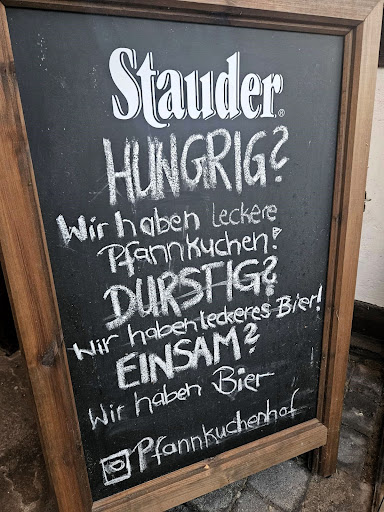 Stauder®
HUNGRIG?
Wir haben leckere
Pfannkuchen!
DURSTIG?
Wir haben leckeres Bier!
EINSAM?
Wir haben Bier
Pfannkuchenhof